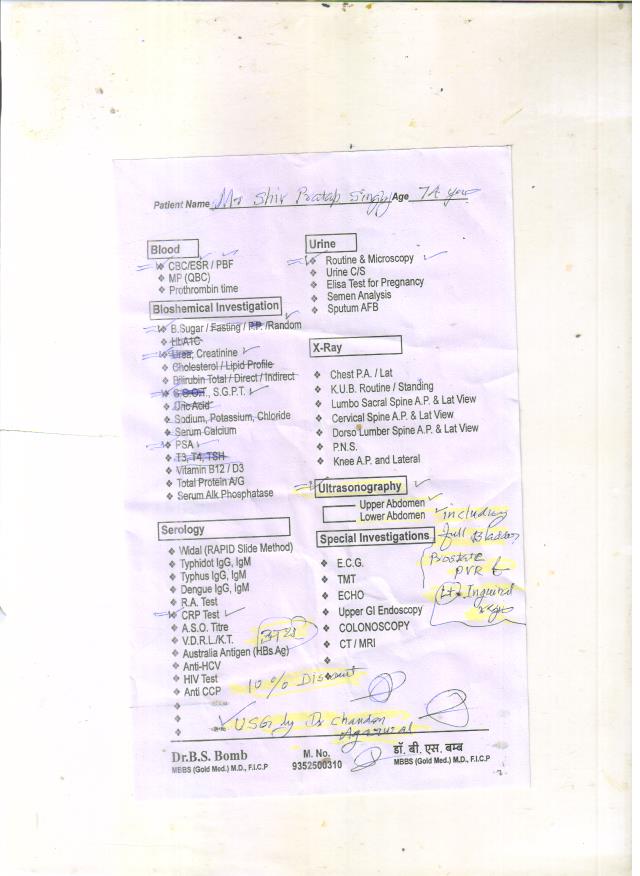 Patient Name Mr Shiv Pratap Singh Age 74 year
Blood
CBC/ESR / PBF
MP (QBC)
Prothrombin time
Bioshemical Investigation
B.Sugar / Fasting / P.P. /Random
HbA1C
Urea, Creatinine
Cholesterol / Lipid Profile
Bilirubin Total / Direct / Indirect
S.G.O.T., S.G.P.T.
Uric Acid
Sodium, Potassium, Chloride
Serum Calcium
PSA
T3, T4, TSH
Vitamin B12 / D3
Total Protein A/G
Serum Alk.Phosphatase
Serology
Widal (RAPID Slide Method)
Typhidot IgG, IgM
Typhus IgG, IgM
Dengue IgG, IgM
R.A. Test
CRP Test
A.S.O. Titre
V.D.R.L./K.T.
Australia Antigen (HBs Ag)
Anti-HCV
HIV Test
Anti CCP
Urine
Routine & Microscopy
Urine C/S
Elisa Test for Pregnancy
Semen Analysis
Sputum AFB
X-Ray
Chest P.A. / Lat
K.U.B. Routine / Standing
Lumbo Sacral Spine A.P. & Lat View
Cervical Spine A.P. & Lat View
Dorso Lumber Spine A.P. & Lat View
P.N.S.
Knee A.P. and Lateral
Ultrasonography
Upper Abdomen
Lower Abdomen
including
full Bladder
Prostate
PVR
Lt. Inguinal
Special Investigations
E.C.G.
TMT
ECHO
Upper GI Endoscopy
COLONOSCOPY
CT / MRI
10% Discount
USG by Dr Chandan
Agarwal
Dr.B.S. Bomb
MBBS (Gold Med.) M.D., F.I.C.P
M. No.
9352500310
डॉ. बी. एस. बम्ब
MBBS (Gold Med.) M.D., F.I.C.P